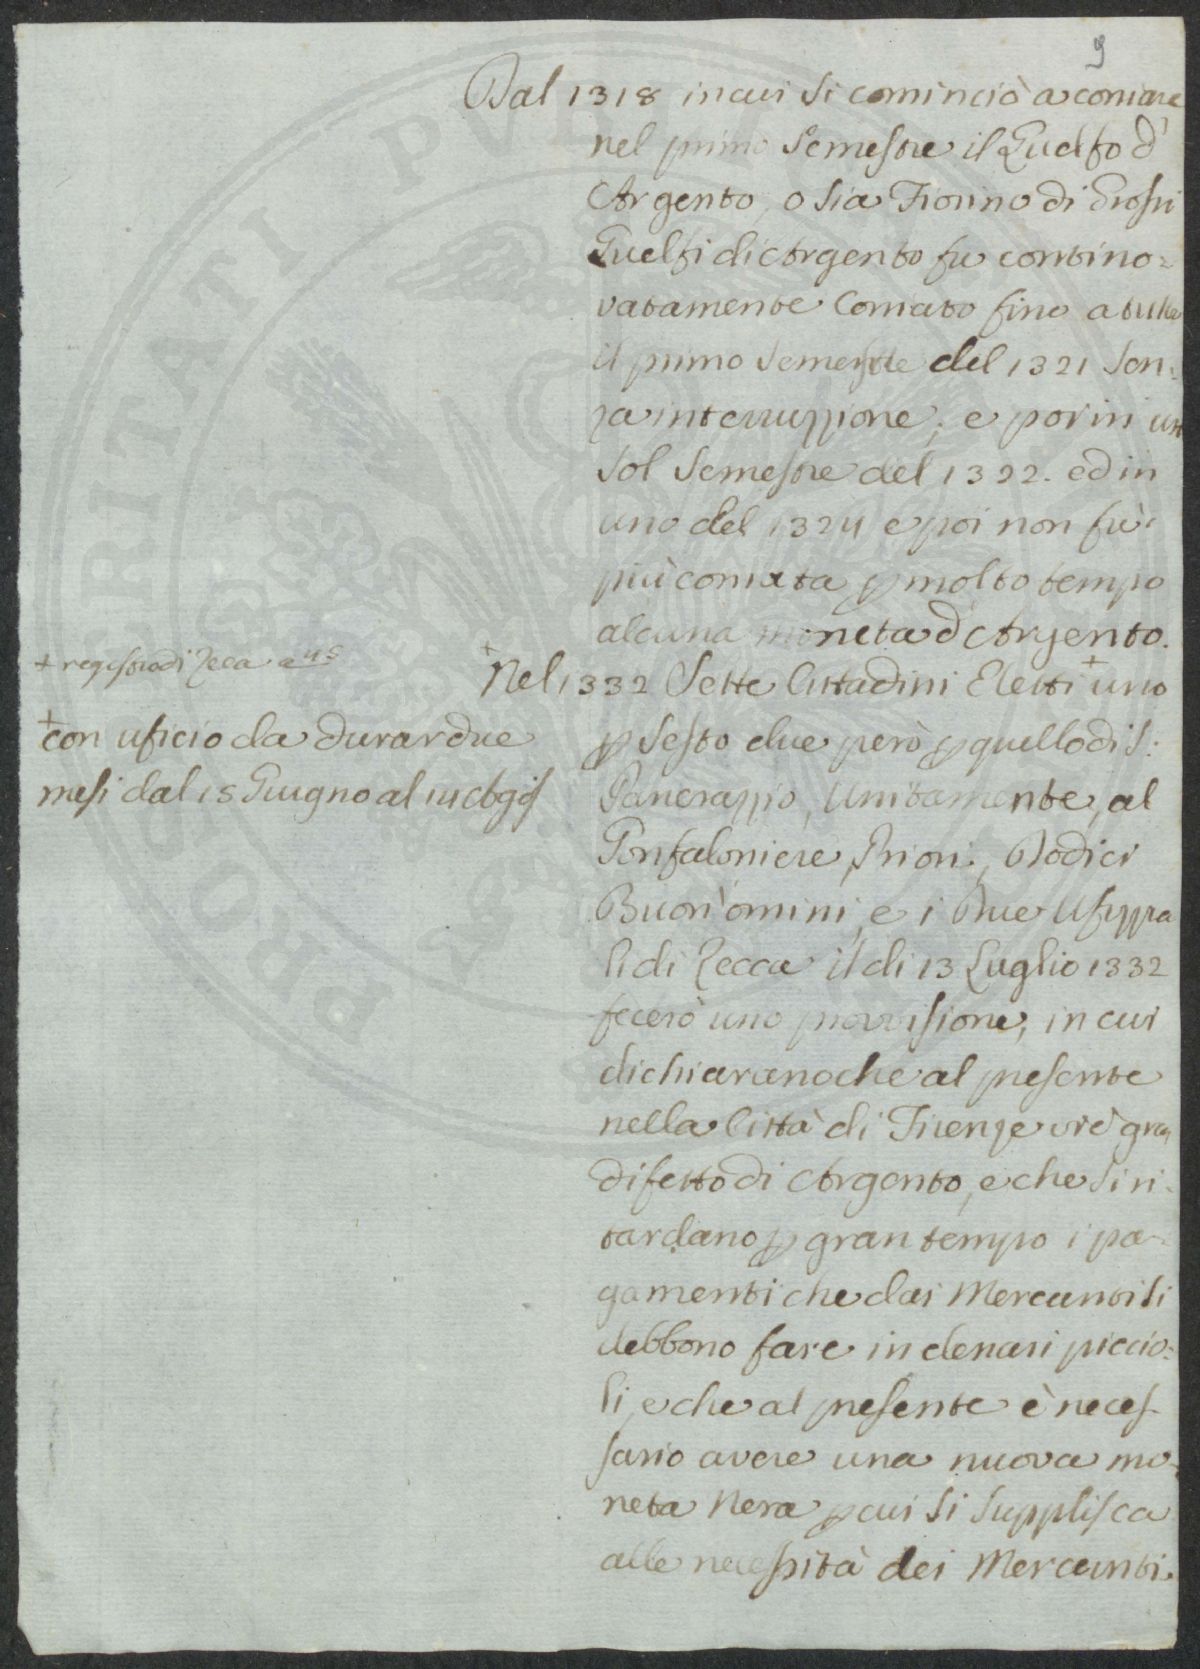 9
Dal 1318 in cui si cominciò a coniare
nel primo Semestre il Guelfo d'
Argento, o sia Fiorino di Grossi
Guelfi di Argento fu contino=
vatamente Coniato fino a tutto
il primo Semestre del 1321 sen=
za interruzzione, e poi in un
sol Semestre del 1322. ed in
uno del 1324 e poi non fù
più coniata p molto tempo
alcuna moneta d'Argento.
+ registro di Zecca a
+ Nel 1332 Sette Cittadini Eletti + uno
p Sesto due però p quello di S:
Pancrazzio, Unitamente, al
Gonfaloniere, Priori, Dodici
Buon'omini, e i Due Ufizzia
li di Zecca il di 13 Luglio 1332
fecero una provvisione, in cui
dichiarano che al presente
nella Città di Firenze vi è gran
difetto di Argento, e che si ri=
tardano p gran tempo i pa=
gamenti che dai Mercanti si
debbono fare in denari piccio=
li, e che al presente è neces=
sario avere una nuova mo=
neta Nera p cui si supplisca
alle necessità dei Mercanti.
+ con uficio da durar due
mesi dal 15 Giugno al 14 Agos
PROSPERITATI PVBLICAE